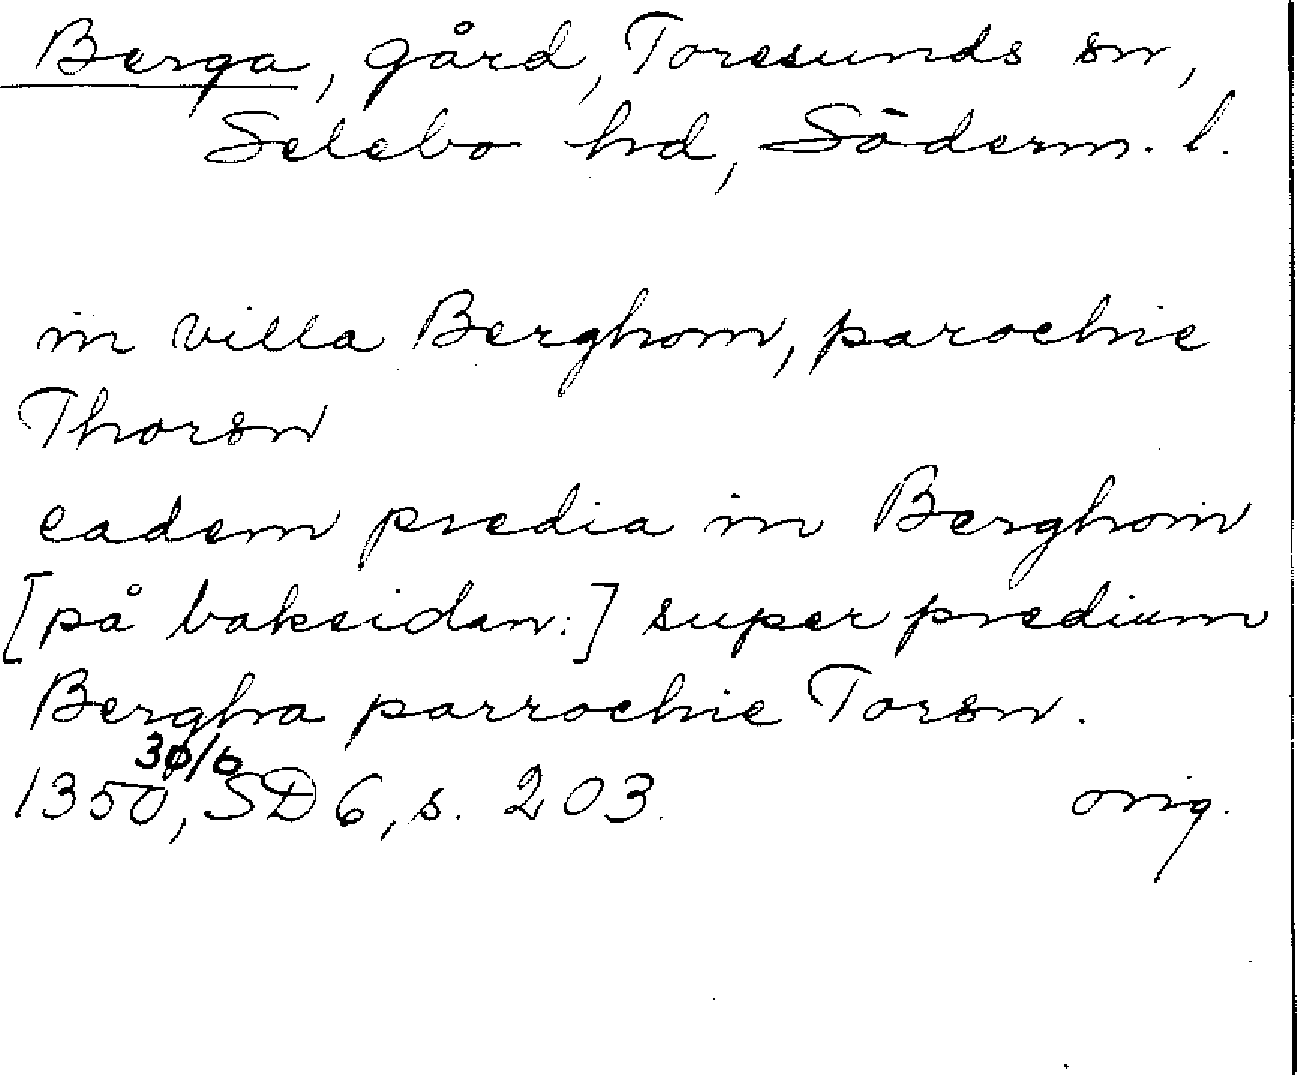 Berga, gård, Toresunds sn,
Selebo hd, Söderm. l.
in villa Berghom, parochie
Thorsn
eadem predia in Berghom
[på baksidan:] super predium
Bergha parrochie Torsn.
30/6
1350, SD 6, s. 203. orig.